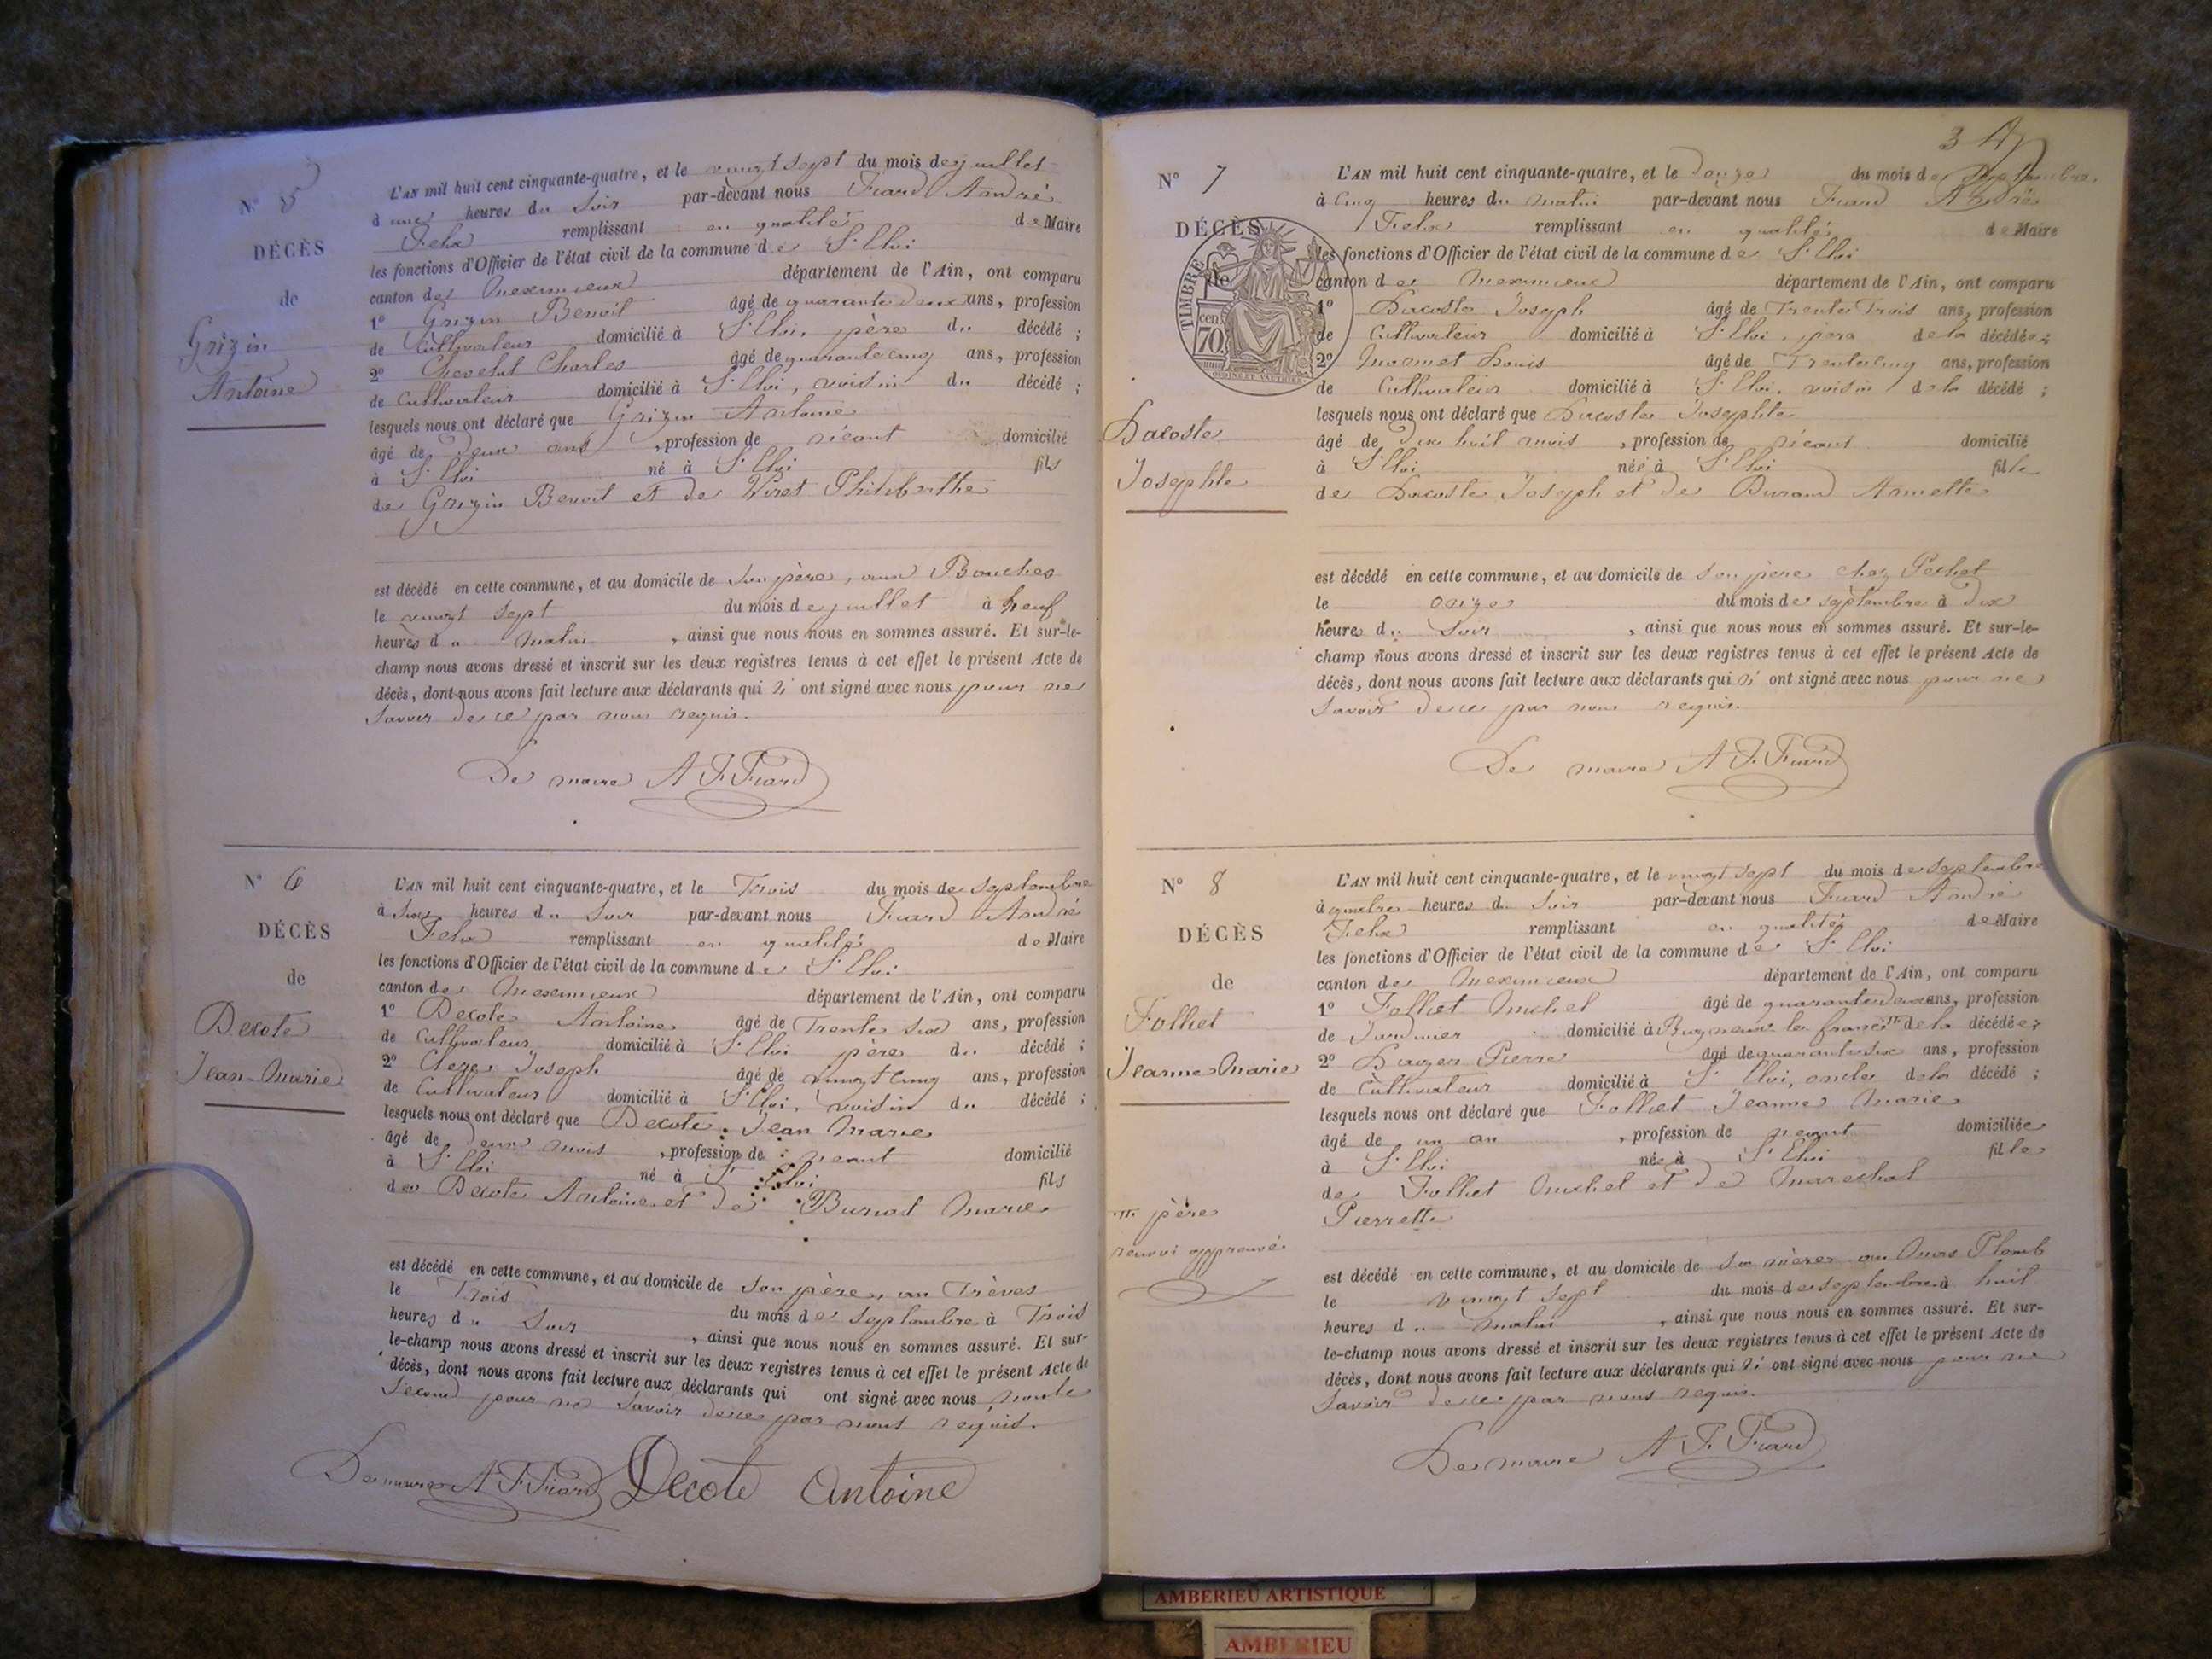 N° 5
DÉCÈS
de
Grizin
Antoine
L'AN mil huit cent cinquante-quatre, et le vingt sept du mois de juillet
à une heures du Soir par-devant nous Fiard André
Felix remplissant en qualité de Maire
les fonctions d'Officier de l'état civil de la commune de St Eloi
canton de Meximieux département de l'Ain, ont comparu
1° Grizin Benoit âgé de quarante deux ans, profession
de Cultivateur domicilié à St Eloi, père du décédé ;
2° Chevelut Charles âgé de quarante cinq ans, profession
de Cultivateur domicilié à St Eloi, voisin du décédé ;
lesquels nous ont déclaré que Grizin Antoine
âgé de deux ans , profession de néant domicilié
à St Eloi né à St Eloi fils
de Grizin Benoit et de Viret Philiberthe
est décédé en cette commune, et au domicile de Son père, aux Bouches
le vingt sept du mois de juillet à neuf
heures du matin , ainsi que nous nous en sommes assuré. Et sur-le-
champ nous avons dressé et inscrit sur les deux registres tenus à cet effet le présent Acte de
décès, dont nous avons fait lecture aux déclarants qui n' ont signé avec nous pour ne
Savoir de ce par nous requis.
Le maire A F Fiard
N° 6
DÉCÈS
de
Decote
Jean-Marie
L'AN mil huit cent cinquante-quatre, et le Trois du mois de Septembre
à Six heures du Soir par-devant nous Fiard André
Felix remplissant en qualité de Maire
les fonctions d'Officier de l'état civil de la commune de St Eloi
canton de Meximieux département de l'Ain, ont comparu
1° Decote Antoine âgé de Trente Six ans, profession
de Cultivateur domicilié à St Eloi père du décédé ;
2° Clerc Joseph âgé de vingt Cinq ans, profession
de Cultivateur domicilié à St Eloi, voisin du décédé ;
lesquels nous ont déclaré que Decote Jean Marie
âgé de deux mois , profession de neant domicilié
à St Eloi né à St Eloi fils
de Decote Antoine et de Burnod Marie
est décédé en cette commune, et au domicile de Son père, au Trèves
le Trois du mois de Septembre à Trois
heures du Soir , ainsi que nous nous en sommes assuré. Et sur-
le-champ nous avons dressé et inscrit sur les deux registres tenus à cet effet le présent Acte de
décès, dont nous avons fait lecture aux déclarants qui ont signé avec nous non le
Second pour ne Savoir de ce par nous requis.
Le maire A F Fiard Decote Antoine
34
N° 7
DÉCÈS
de
TIMBRE
70 cen
Lacoste
Josephte
L'AN mil huit cent cinquante-quatre, et le Douze du mois de Septembre
à Cinq heures du matin par-devant nous Fiard André
Felix remplissant en qualité de Maire
les fonctions d'Officier de l'état civil de la commune de St Eloi
canton de Meximieux département de l'Ain, ont comparu
1° Lacoste Joseph âgé de Trente Trois ans, profession
de Cultivateur domicilié à St Eloi, père de la décédée ;
2° Mermet Louis âgé de Trente Cinq ans, profession
de Cultivateur domicilié à St Eloi, voisin de la décédé ;
lesquels nous ont déclaré que Lacoste Josephte
âgé de dix huit mois , profession de néant domicilié
à St Eloi née à St Eloi fille
de Lacoste Joseph et de Durand Annette
est décédé en cette commune, et au domicile de Son père chez Pechet
le onze du mois de septembre à Dix
heure du Soir , ainsi que nous nous en sommes assuré. Et sur-le-
champ nous avons dressé et inscrit sur les deux registres tenus à cet effet le présent Acte de
décès, dont nous avons fait lecture aux déclarants qui n' ont signé avec nous pour ne
Savoir de ce par nous requis.
Le maire A F Fiard
N° 8
DÉCÈS
de
Folliet
Jeanne Marie
père
renvoi approuvé
L'AN mil huit cent cinquante-quatre, et le vingt sept du mois de Septembre
à quatre heures du Soir par-devant nous Fiard André
Felix remplissant en qualité de Maire
les fonctions d'Officier de l'état civil de la commune de St Eloi
canton de Meximieux département de l'Ain, ont comparu
1° Folliet Michel âgé de quarante Deux ans, profession
de Jardinier domicilié à de la décédée ;
2° Pierre âgé de quarante Six ans, profession
de Cultivateur domicilié à St Eloi, oncle de la décédé ;
lesquels nous ont déclaré que Folliet Jeanne Marie
âgé de un an , profession de neant domiciliée
à St Eloi née à St Eloi fille
de Folliet Michel et de Marechal
Pierrette
est décédé en cette commune, et au domicile de Sa mère au Mars Plomb
le vingt Sept du mois de Septembre à huit
heures du matin , ainsi que nous nous en sommes assuré. Et sur-
le-champ nous avons dressé et inscrit sur les deux registres tenus à cet effet le présent Acte de
décès, dont nous avons fait lecture aux déclarants qui n' ont signé avec nous pour ne
Savoir de ce par nous requis.
Le maire A F Fiard
AMBERIEU ARTISTIQUE
AMBERIEU